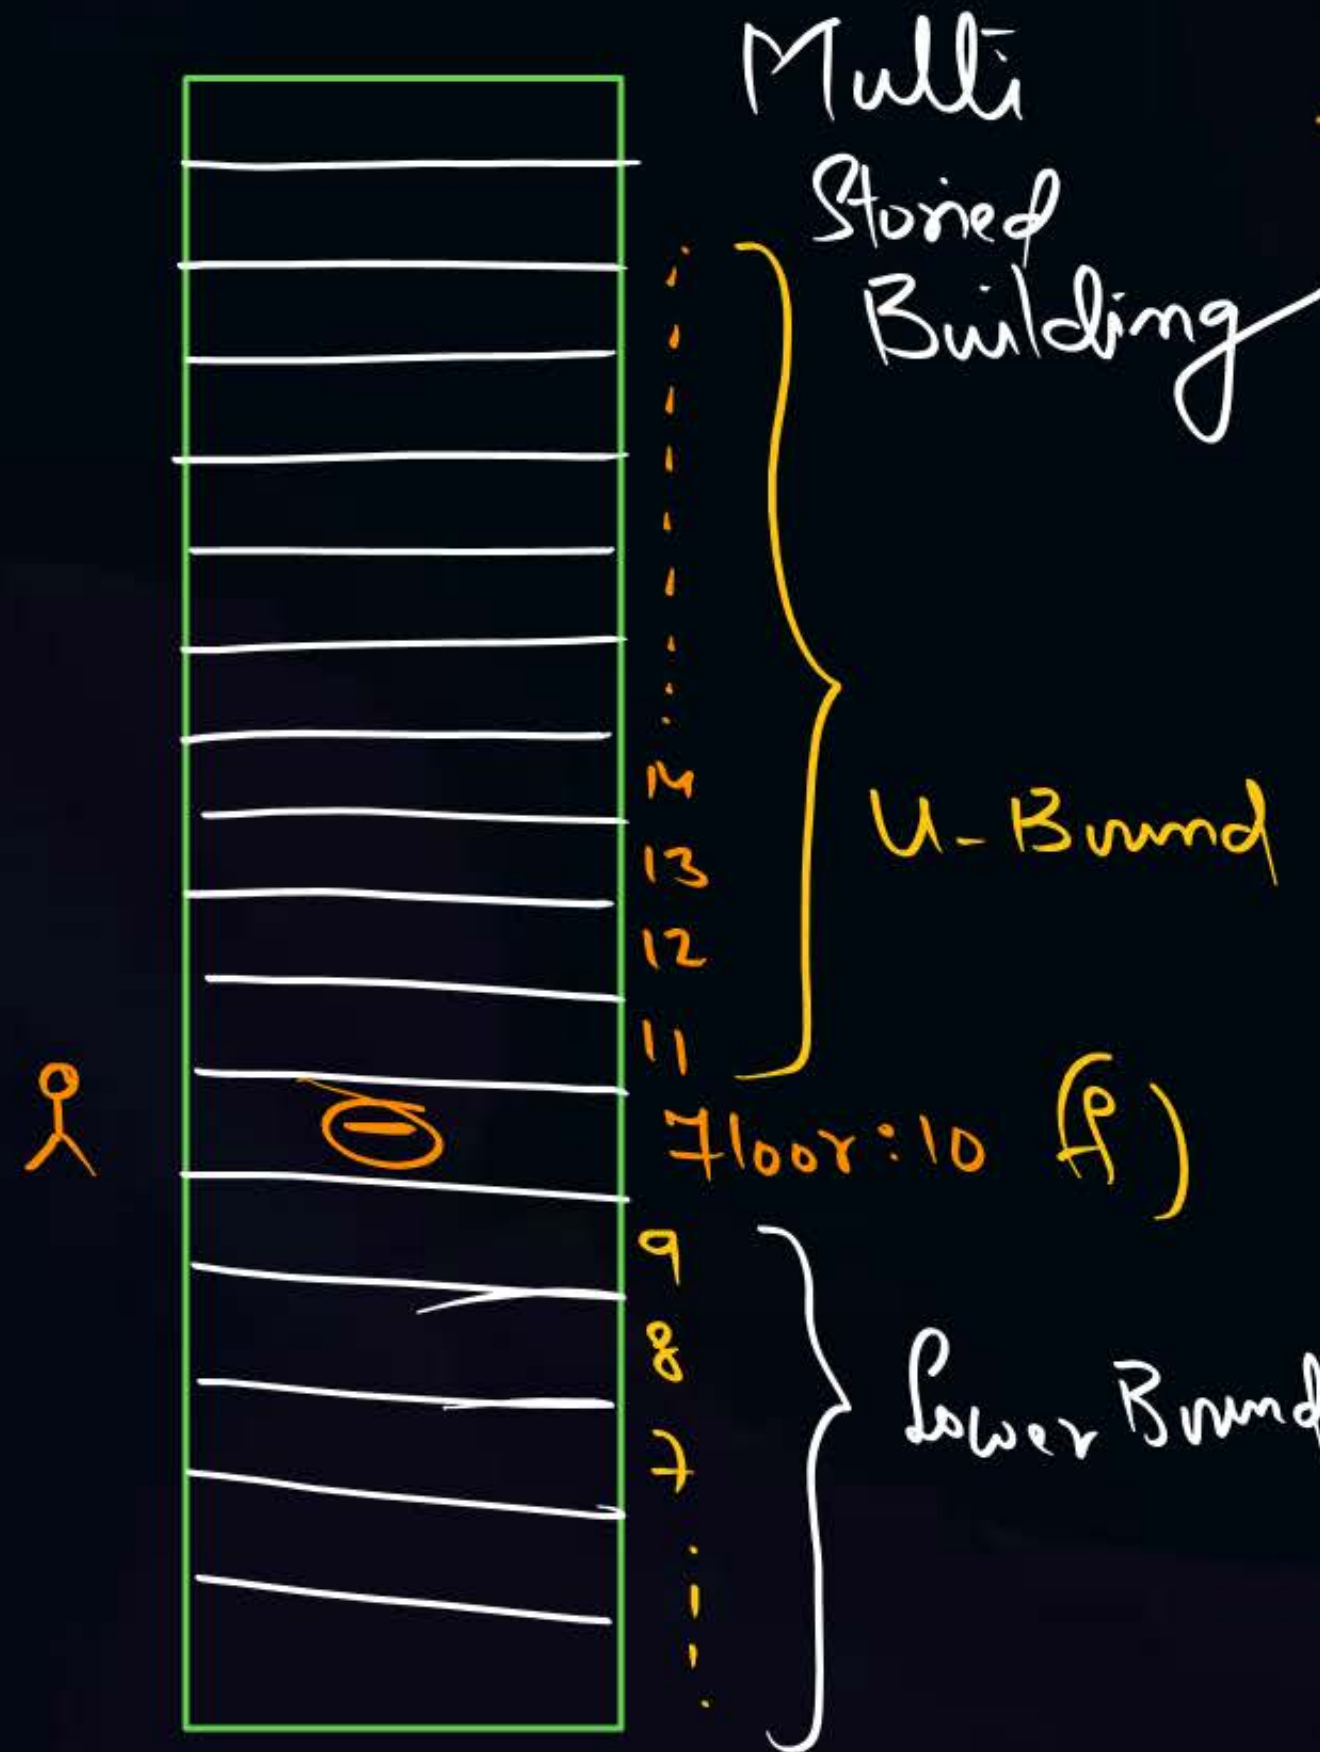 Multi
Storied
Building
14
13
U-Bound
12
11
Floor: 10 (P)
9
8
Lower Bound
7